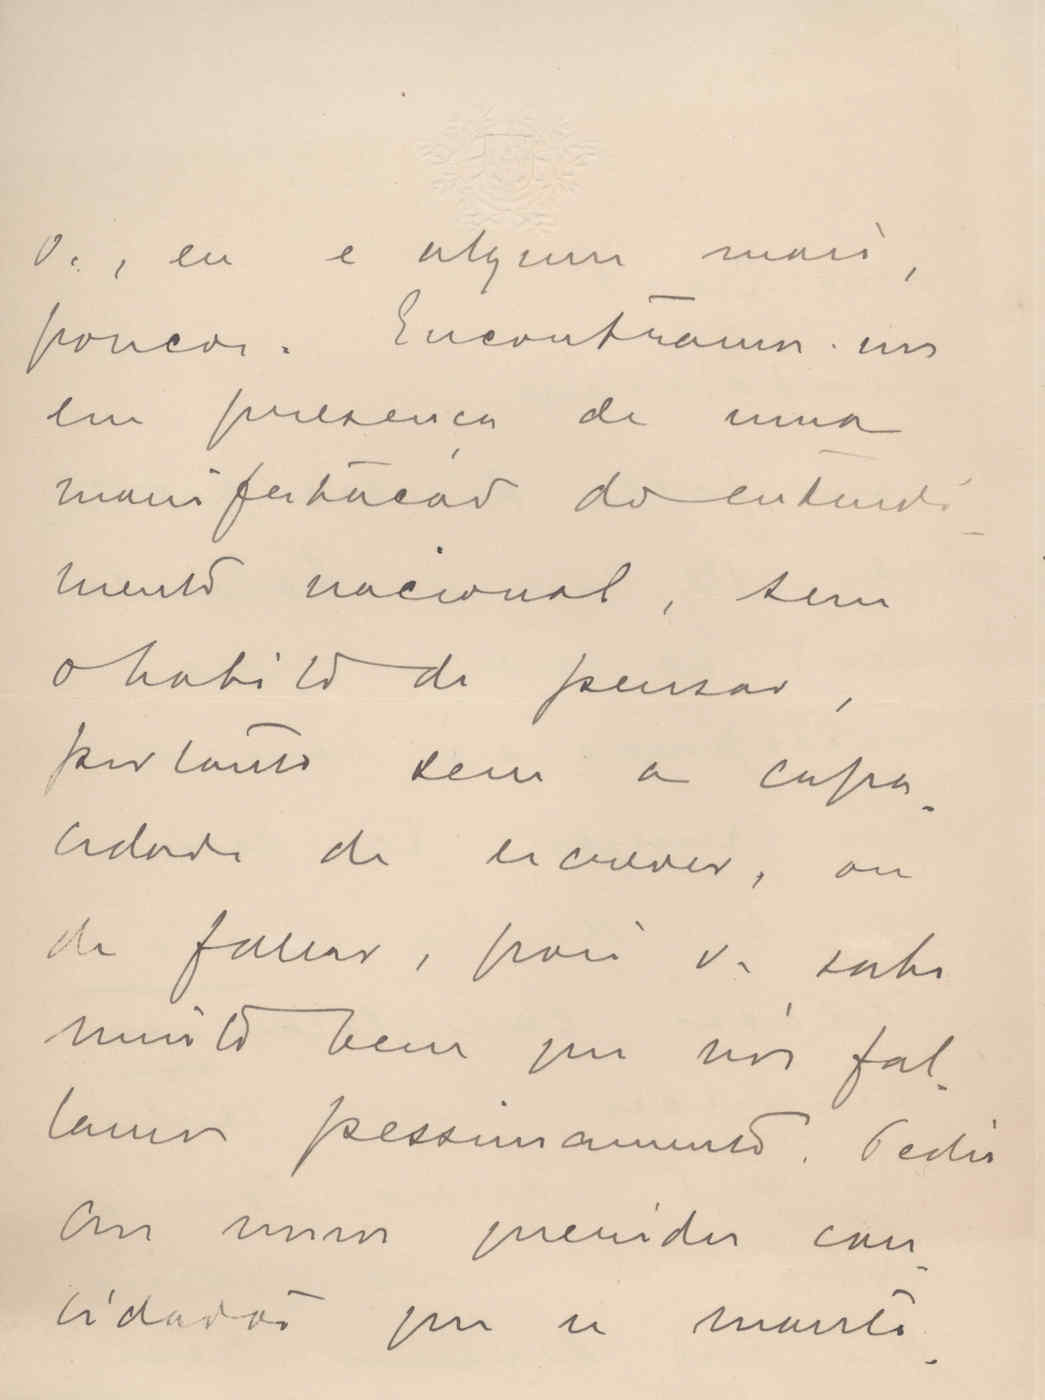 V., eu e alguns mais,
poucos. Encontramo-nos
em presença de uma
manifestação do entendi-
mento nacional, sem
o habito de pensar,
portanto sem a capa-
cidade de escrever, ou
de fallar, pois V. sabe
muito bem que nós fal-
lamos pessimamente. Pedir
aos meus queridos con-
cidadãos que se mante-